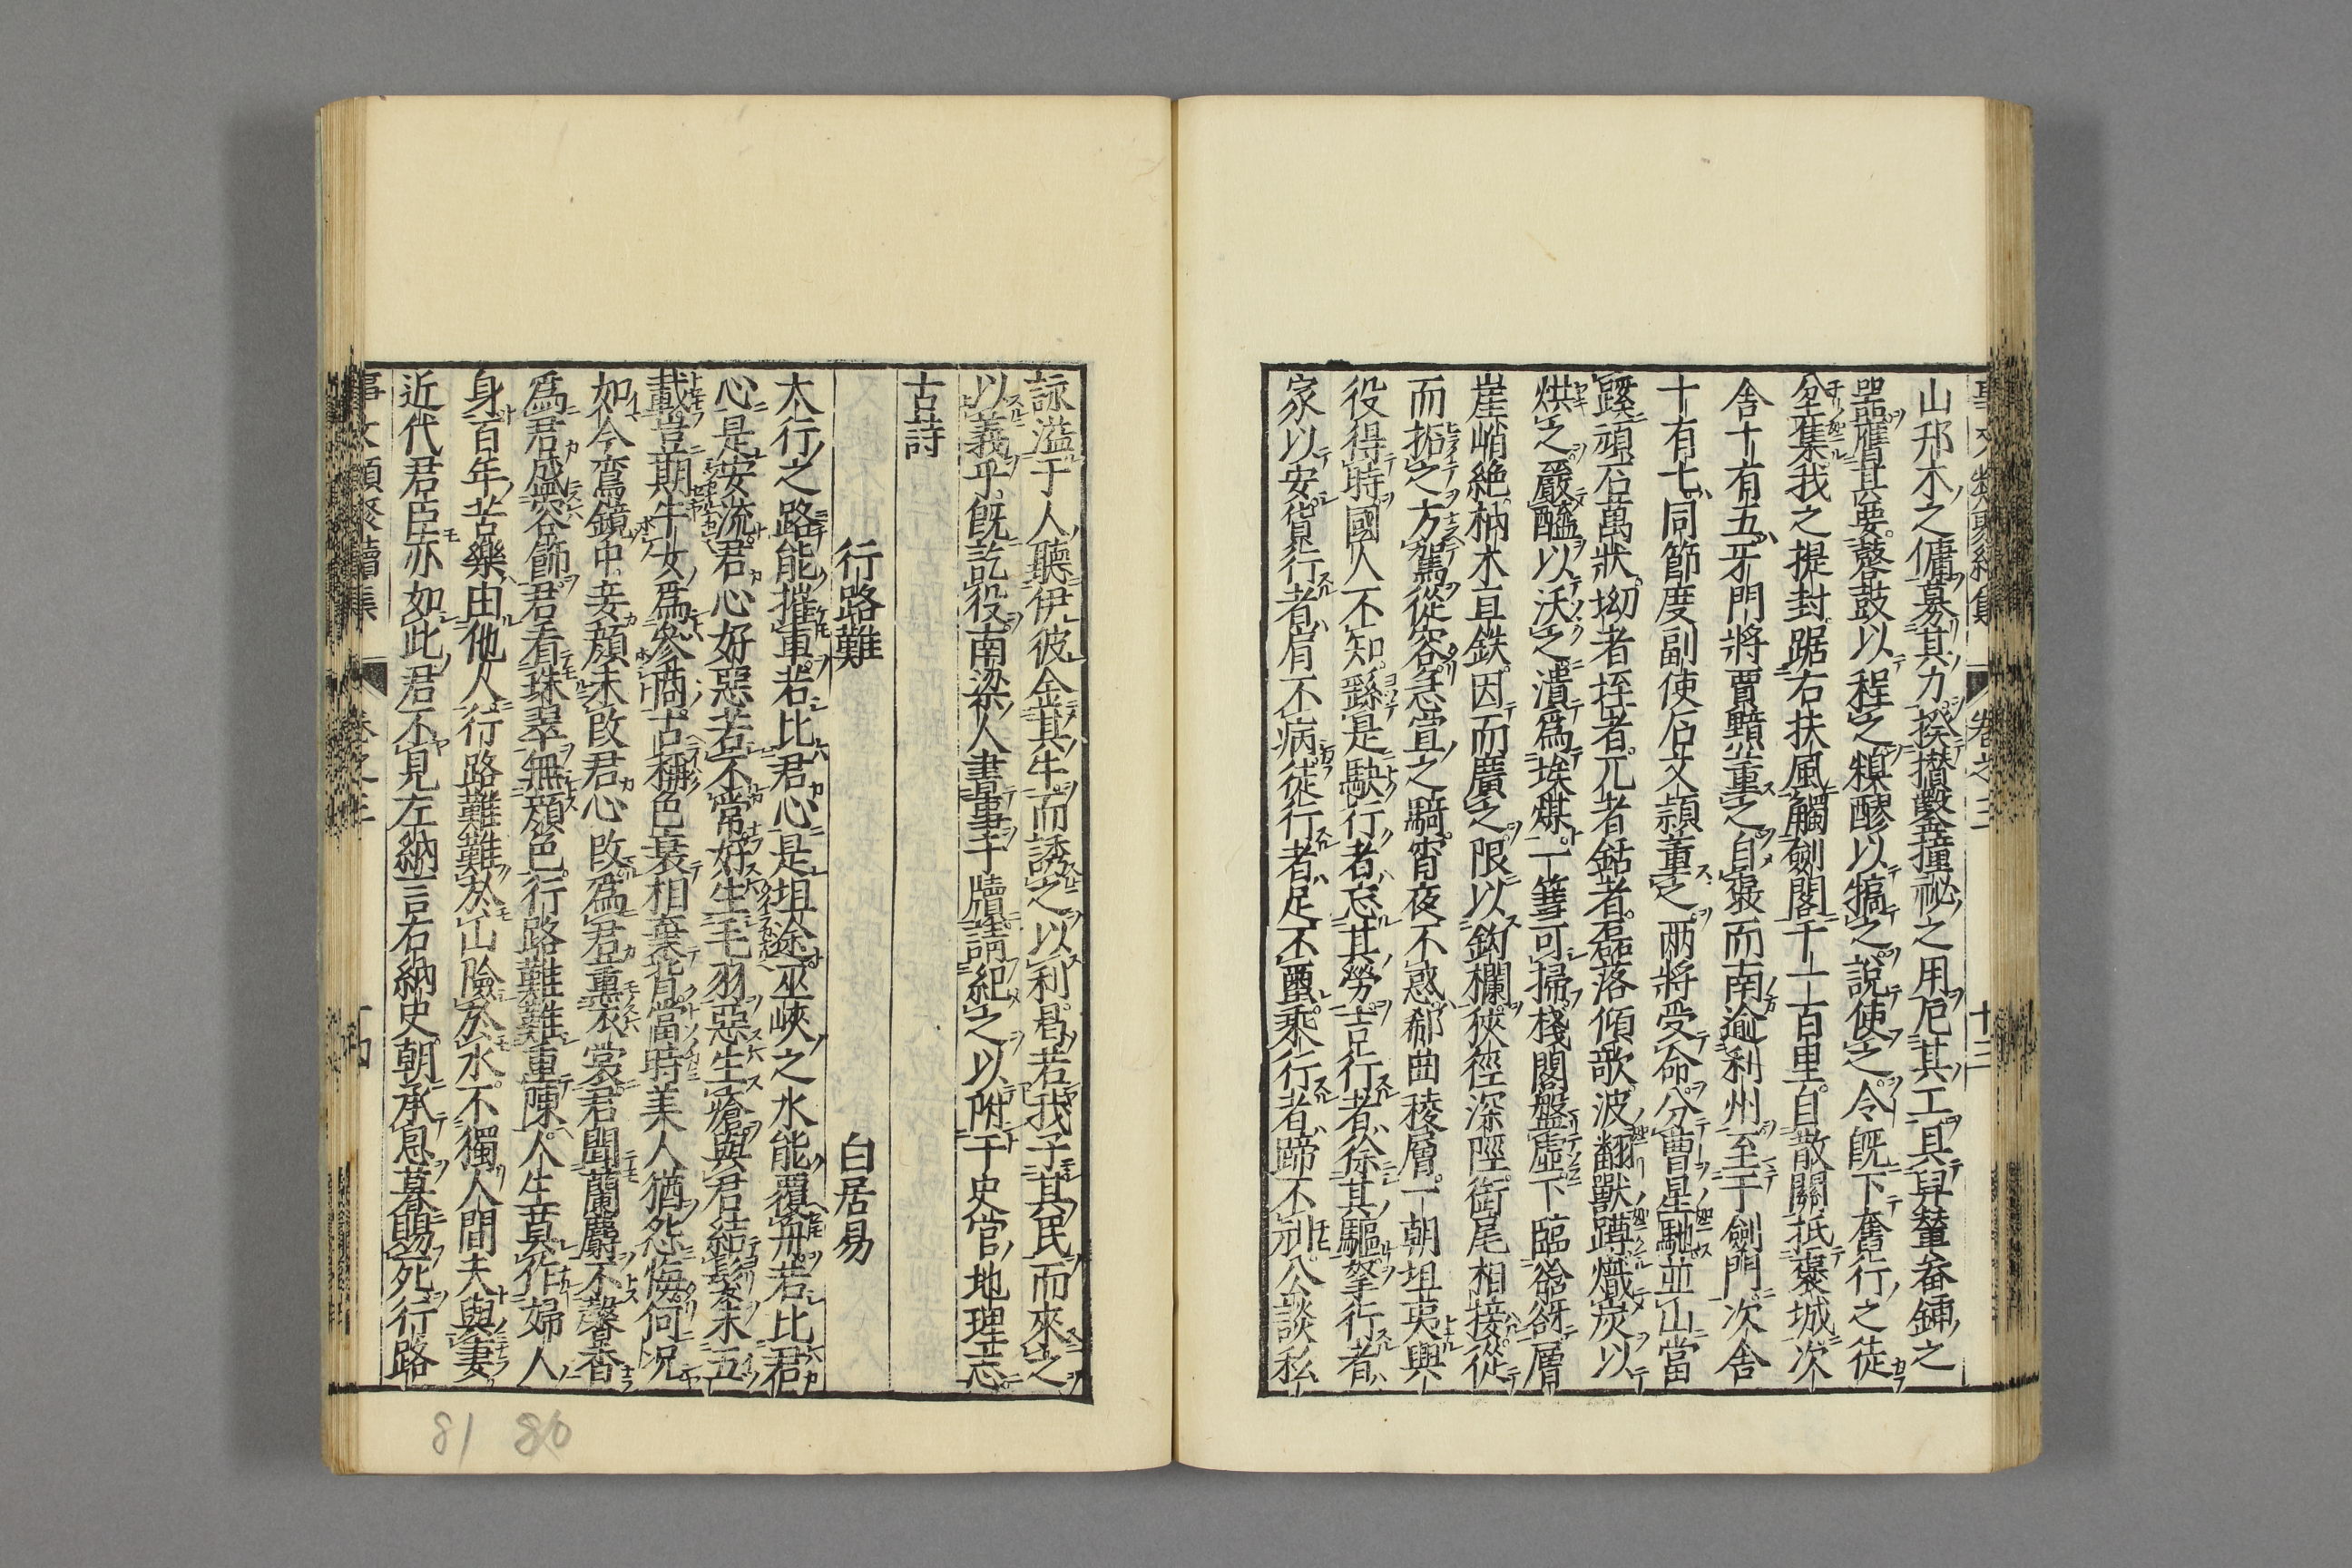 事文類聚續集 卷之三 十三
山邦木之傭募其力揆攢鑿撞祕之用庀其工具舁輦畚鍤之
器膺其要鼛鼓以程之糗醪以犒之說使之令既下奮行之徒
坌集我之提封踞右扶風觸劍閣千一百里自散關抵褒城次
舍十有五牙門將賈黯董之自褒而南逾利州至于劍門次舍
十有七同節度副使石文頴董之兩將受命分曹星馳並山當
蹊頑石萬狀坳者垤者兀者銛者磊落傾欹波翻獸蹲熾炭以
烘之嚴醯以沃之潰爲埃煤一篲可掃棧閣盤虛下臨谽谺層
崖峭絕枘木亘鉄因而廣之限以鈎欄狹徑深陘銜尾相接從
而拓之方駕從容急宣之騎宵夜不惑郄曲稜層一朝坦夷興
役得時國人不知繇是駃行者忘其勞吉行者徐其驅孥行者
家以安貨行者肩不病徒行者足不繭乘行者蹄不刓公談私
詠溢于人聽伊彼金其牛而誘之以利曷若我子其民而來之
以義乎既訖役南梁人書事于牘請紀之以附于史官地理志
古詩
行路難 白居易
太行之路能摧車若比君心是坦途巫峽之水能覆舟若比君
心是安流君心好惡苦不常好生毛羽惡生瘡與君結髮未五
載豈期牛女爲參商古稱色衰相棄背當時美人猶怨悔何況
如今鸞鏡中妾顏未改君心改爲君薰衣裳君聞蘭麝不馨香
爲君盛容飾君看珠翠無顏色行路難難重陳人生莫作婦人
身百年苦樂由他人行路難難於山險於水不獨人間夫與妻
近代君臣亦如此君不見左納言右納史朝承恩暮賜死行路
事文類聚續集 卷之三 十四
81 80